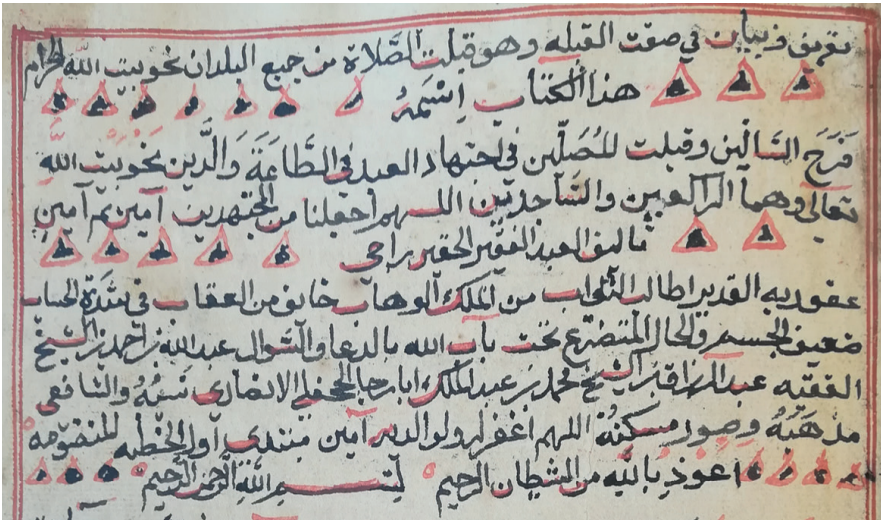 تعريف في بيان في صفت القبله وهو قبلت الصلاة من جميع البلدان نحو بيت الله الحرام
هذا الكتاب اسمه
فرح السالين وقبلت للمصلين في اجتهاد العبد في الطاعة والدين نحو بيت الله
تعالى وهما الراكعين والساجدين اللهم اجعلنا من المجتهدين آمين ثم آمين
تاليف العبد الفقير الحقير راجى
عفو ربه القدير اطالب الثواب من الملك الوهاب خايف من العقاب في شدة الحساب
ضعيف الجسم والحال المتضرع تحت باب الله بالدعا والسوال عبد الله بن احمد بن الشيخ
الفقيه عبد الرزاق بن الشيخ محمد بن عبد الملك الانصارى نسبه والشافعى
مذهبه مسكنه اللهم اغفر له ولوالديه آمين مبتدى اول الخطبه المنضومه
اعوذ بالله من الشيطان الرجيم بسم الله الرحمن الرحيم